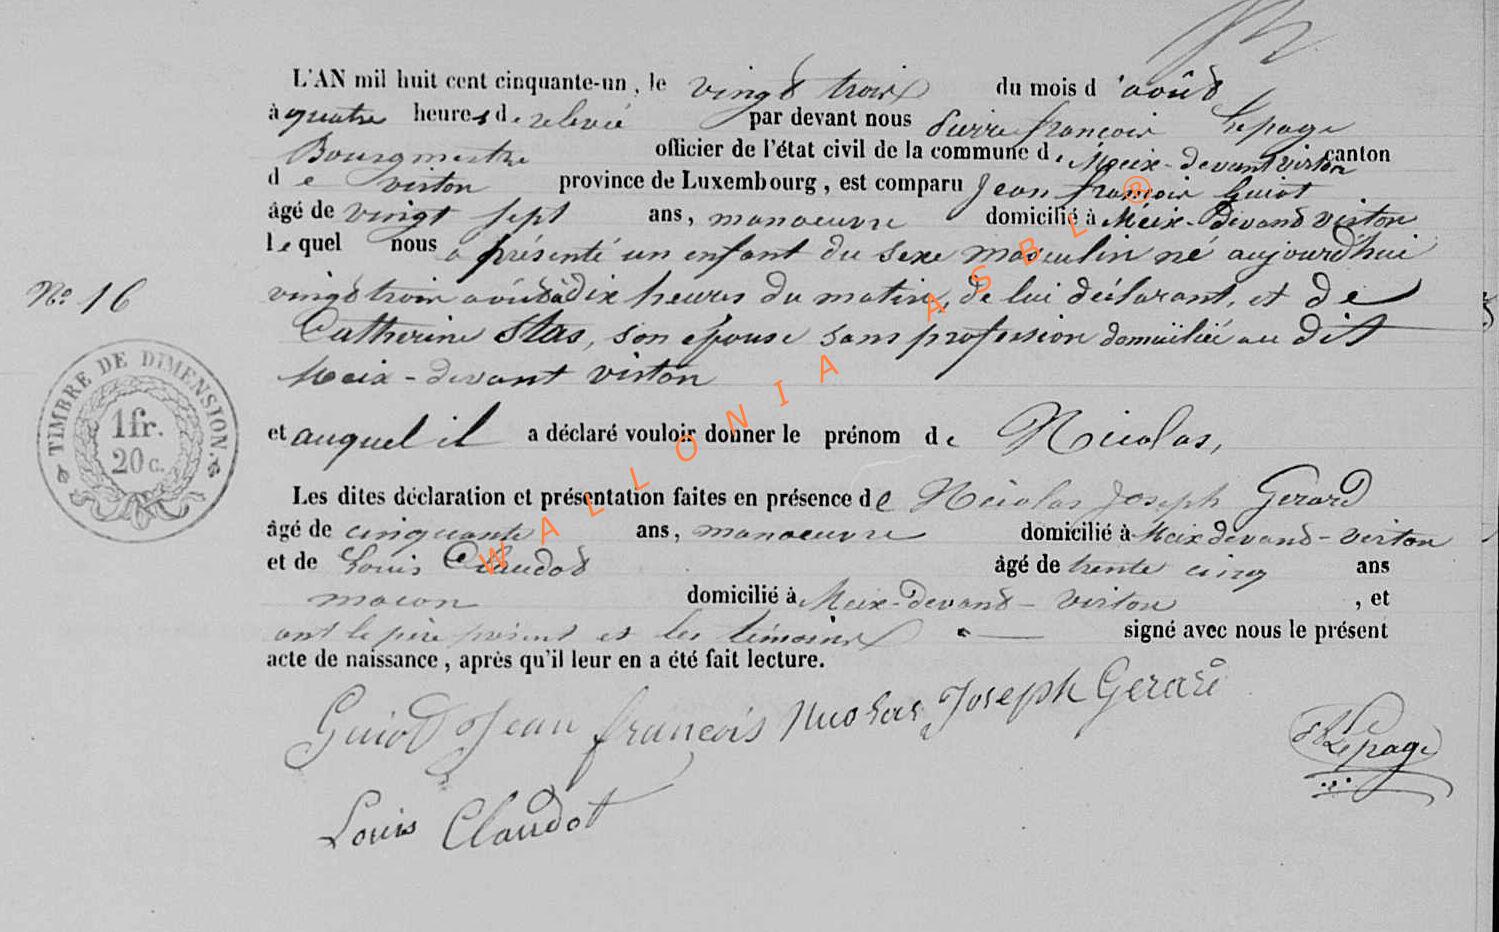 L'AN mil huit cent cinquante-un, le vingt trois du mois d'août
à quatre heures de relevée par devant nous Pierre françois Lepage
Bourgmestre officier de l'état civil de la commune de Meix-devant virton canton
de virton province de Luxembourg, est comparu Jean françois Guiot
âgé de vingt sept ans, manoeuvre domicilié à Meix-Devant virton
lequel nous a présenté un enfant du sexe masculin né aujourd'hui
N° 16
vingt trois août à dix heures du matin, de lui déclarant, et de
Catherine Stas, son épouse sans profession domiciliée au dit
Meix-devant virton
TIMBRE DE DIMENSION.
1 fr.
20 c.
et auquel il a déclaré vouloir donner le prénom de Nicolas,
Les dites déclaration et présentation faites en présence de Nicolas Joseph Gerard
âgé de cinquante ans, manoeuvre domicilié à Meix devant-virton
et de Louis Claudot âgé de trente cinq ans
macon domicilié à Meix-Devant-virton, et
ont le père présent et les témoins signé avec nous le présent
acte de naissance, après qu'il leur en a été fait lecture.
Guiot Jean françois Nicolas Joseph Gerard
Lepage
Louis Claudot
WALLONIA ASBL ®